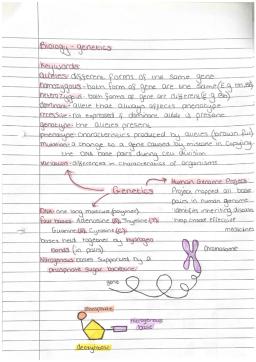 Biology - genetics
Keywords
alleles - different forms of the same gene
homozygous - both form of gene are the same (E.g BB, bb)
heterozygous - both forms of gene are different (E.g Bb)
dominant - allele that always affects phenotype
recessive - not expressed if dominant allele is present
genotype - the alleles present
phenotype - characteristics produced by alleles (brown fur)
mutation - a change to a gene caused by mistake in copying
the DNA base pairs during cell division
variation - differences in characteristics of organisms
Genetics
Human Genome Project:
Project mapped all base
pairs in human genome
identifies inherited disease
help create effective
medicines
DNA: one long molecule (polymer)
four bases: Adenosine (A), Thymine (T)
Guanine (G), Cytosine (C)
bases held together by hydrogen
bonds (in pairs)
Nitrogenous bases supported by a
phosphate sugar backbone
chromosome
gene
phosphate
nitrogenous
base
deoxyribose